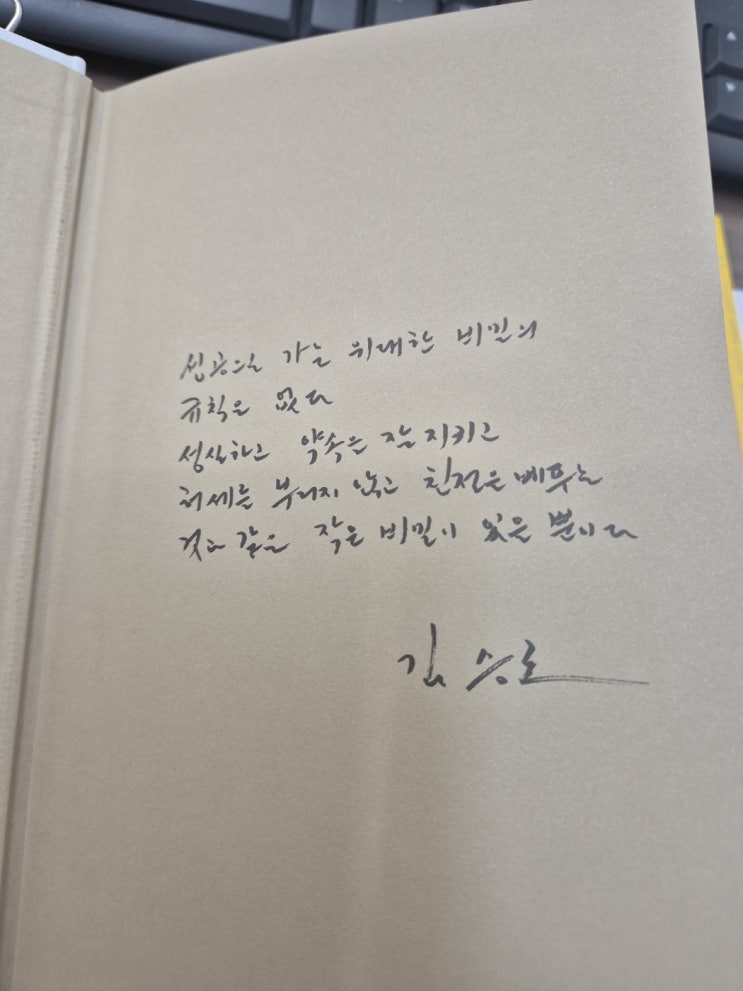 성공으로 가는 위대한 비밀의
규칙은 없다
성실하고 약속은 잘 지키고
허세를 부리지 않고 친절을 베푸는
것과 같은 작은 비밀이 있을 뿐이다
김승호